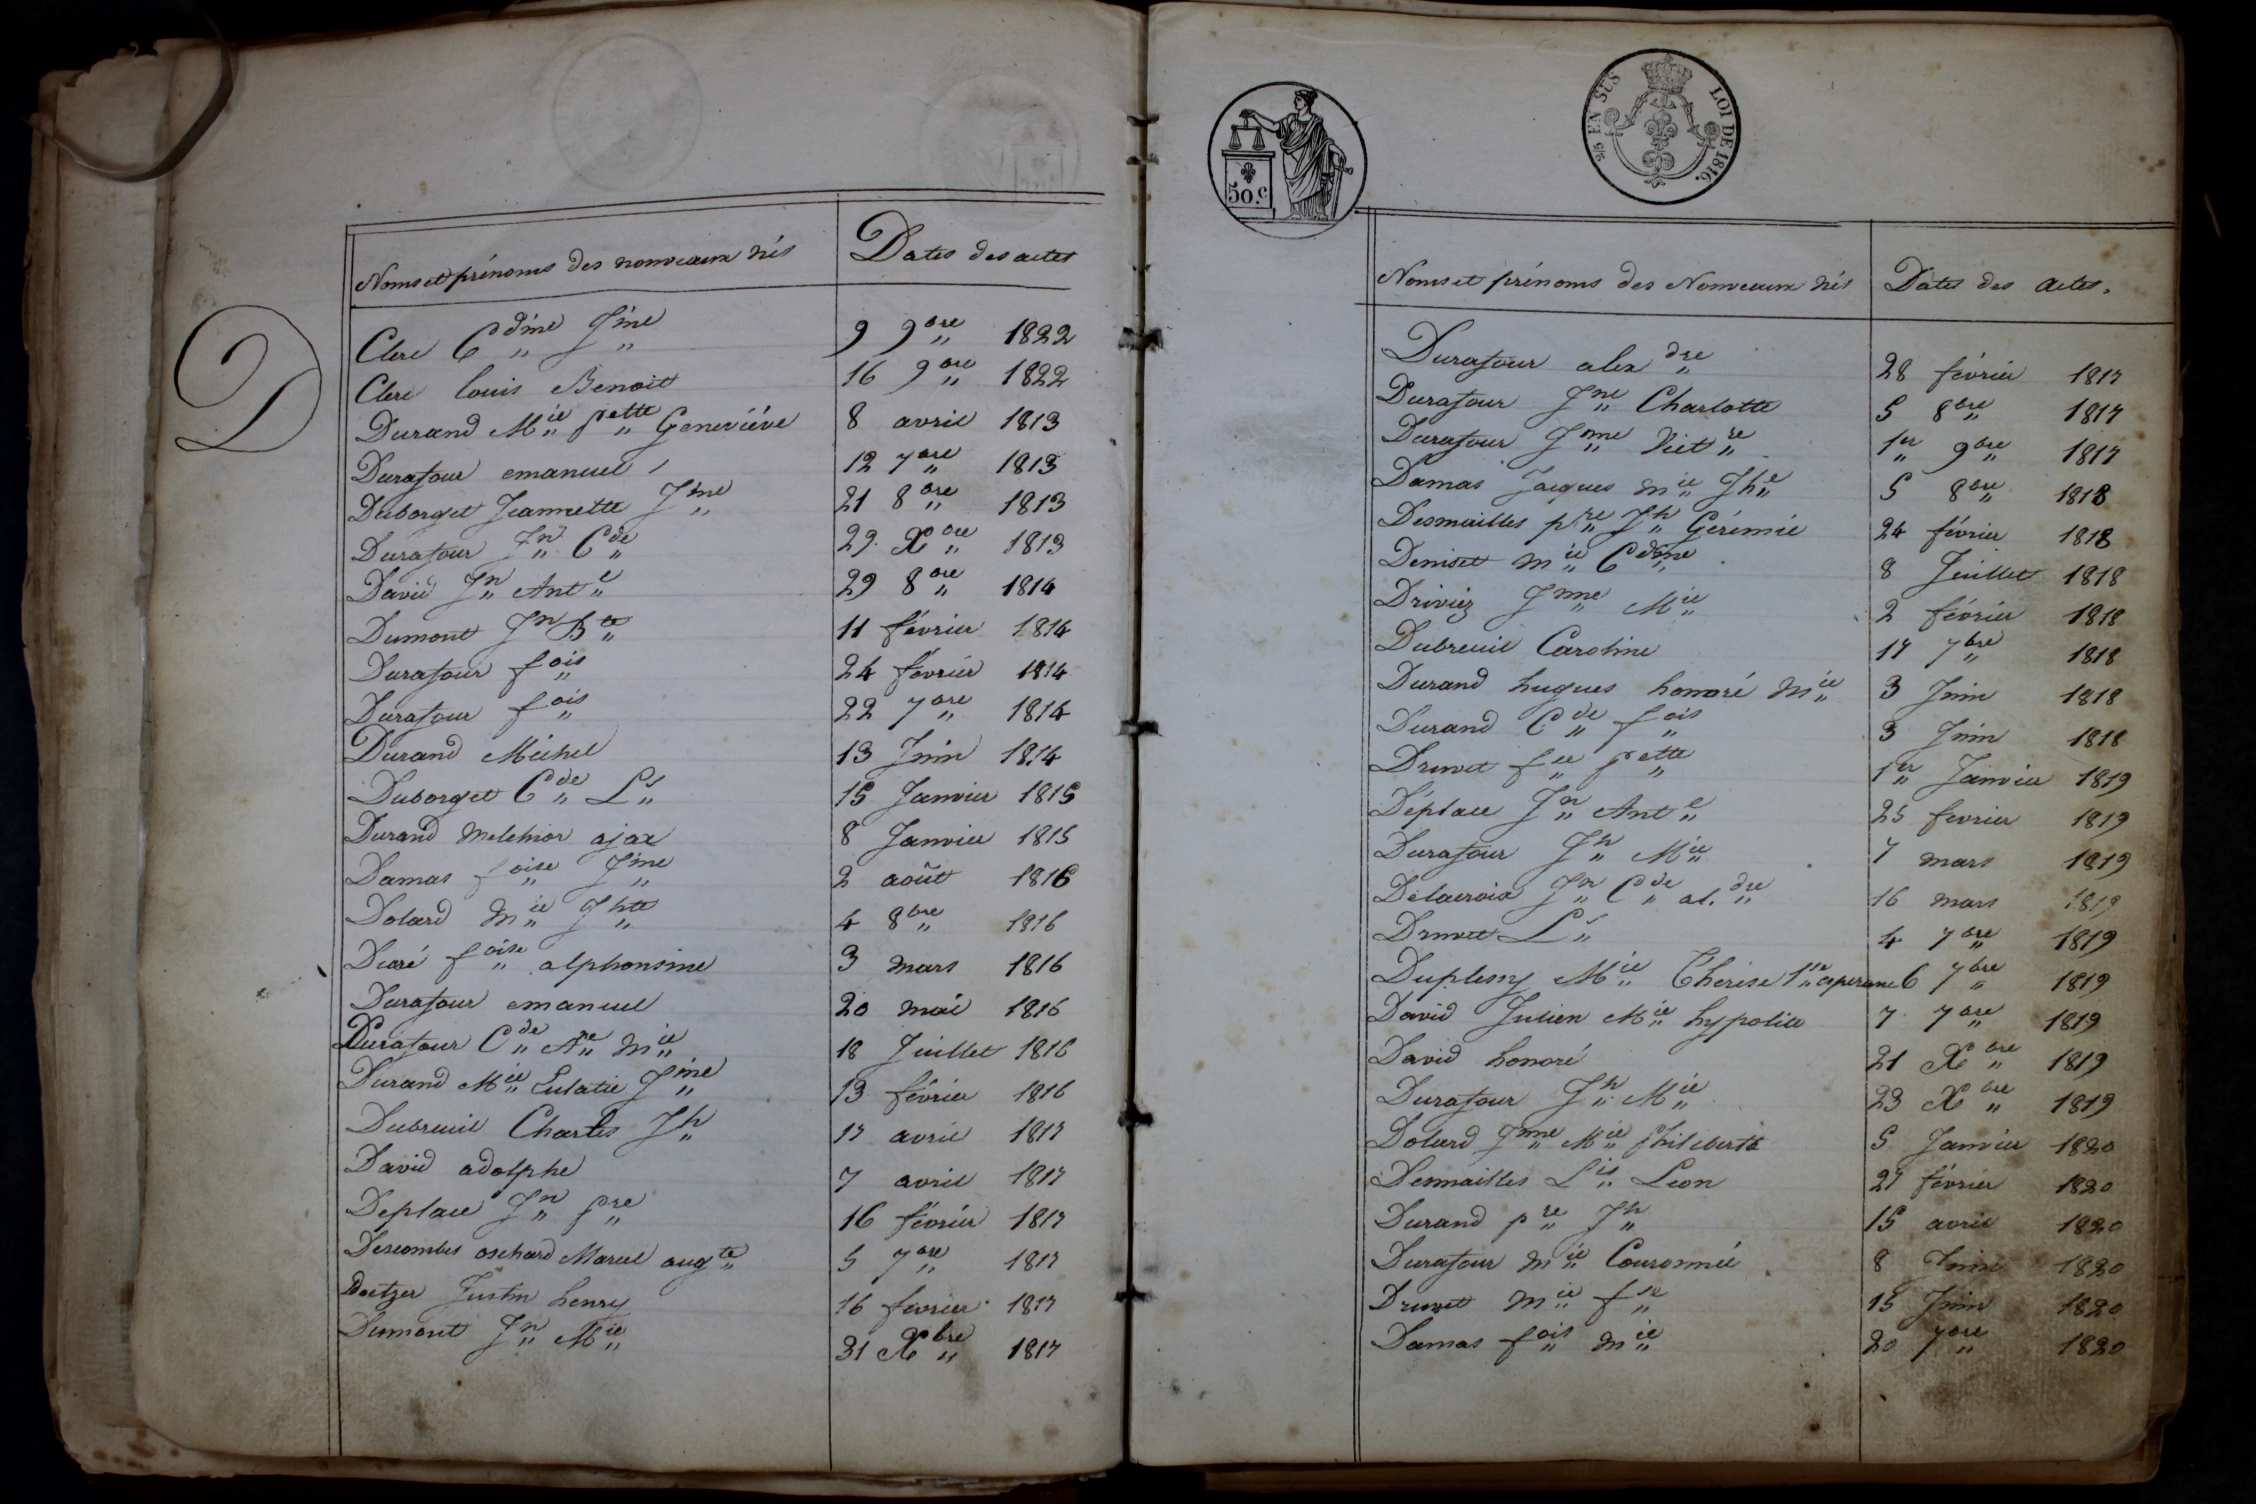 Noms et prénoms des nouveaux nés Dates des actes
D
Clerc Cdine Jine 9 9bre 1822
Clerc louis Benoit 16 9bre 1822
Durand Mie pette Geneviéve 8 avril 1813
Durafour emanuel 12 7bre 1813
Duborget Jeannette Jine 21 8bre 1813
Durafour Jn Cde 29 Xbre 1813
David Jn Ante 29 8bre 1814
Dumont Jn Bte 11 février 1814
Durafour fois 24 février 1814
Durafour fois 22 7bre 1814
Durand Michel 13 Juin 1814
Duborget Cde Ls 15 Janvier 1815
Durand melchior ajax 8 Janvier 1815
Damas foise Jine 2 août 1816
Dolard mie Jhte 4 8bre 1816
foise alphonsine 3 mars 1816
Durafour emanuel 20 mai 1816
Durafour Cde Ane mie 18 Juillet 1816
Durand Mie Eulatie Jine 13 février 1816
Dubreuil Charles Jh 17 avril 1817
David adolphe 7 avril 1817
Deplace Jn pre 16 février 1817
Descombes Marcel augte 5 7bre 1817
Justin henry 16 février 1817
Dumont Jn Mie 31 Xbre 1817
50 c.
EN SUS LOI DE 1816.
Noms et prénoms des Nouveaux nés Dates des actes.
Durafour alexdre 28 février 1817
Durafour Jne Charlotte 5 8bre 1817
Durafour Jnne Victre 1er 9bre 1817
Damas Jacques mie Jhe 5 8bre 1818
Desmailles pre Jh Gérémie 24 février 1818
Deniset mie Cdine 8 Juillet 1818
Driviez Jnne Mie 2 février 1818
Dubreuil Caroline 17 7bre 1818
Durand hugues honoré mie 3 Juin 1818
Durand Cde fois 3 Juin 1818
Druvet fie pette 1er Janvier 1819
Déplace Jn Ante 25 fevrier 1819
Durafour Jh Mie 7 mars 1819
Délacroix Jn Cde al.dre 16 mars 1819
Druvet Ls 4 7bre 1819
Duplessy Mie Thérése 6 7bre 1819
David Julien Mie hypolite 7 7bre 1819
David honoré 21 Xbre 1819
Durafour Jh Mie 23 Xbre 1819
Dolard Jnne Mie philiberte 5 Janvier 1820
Desmailles Lis Leon 27 février 1820
Durand pre Jh 15 avril 1820
Durafour mie Couronnée 8 Juin 1820
Druvet mie fse 15 Juin 1820
Damas fois mie 20 7bre 1820